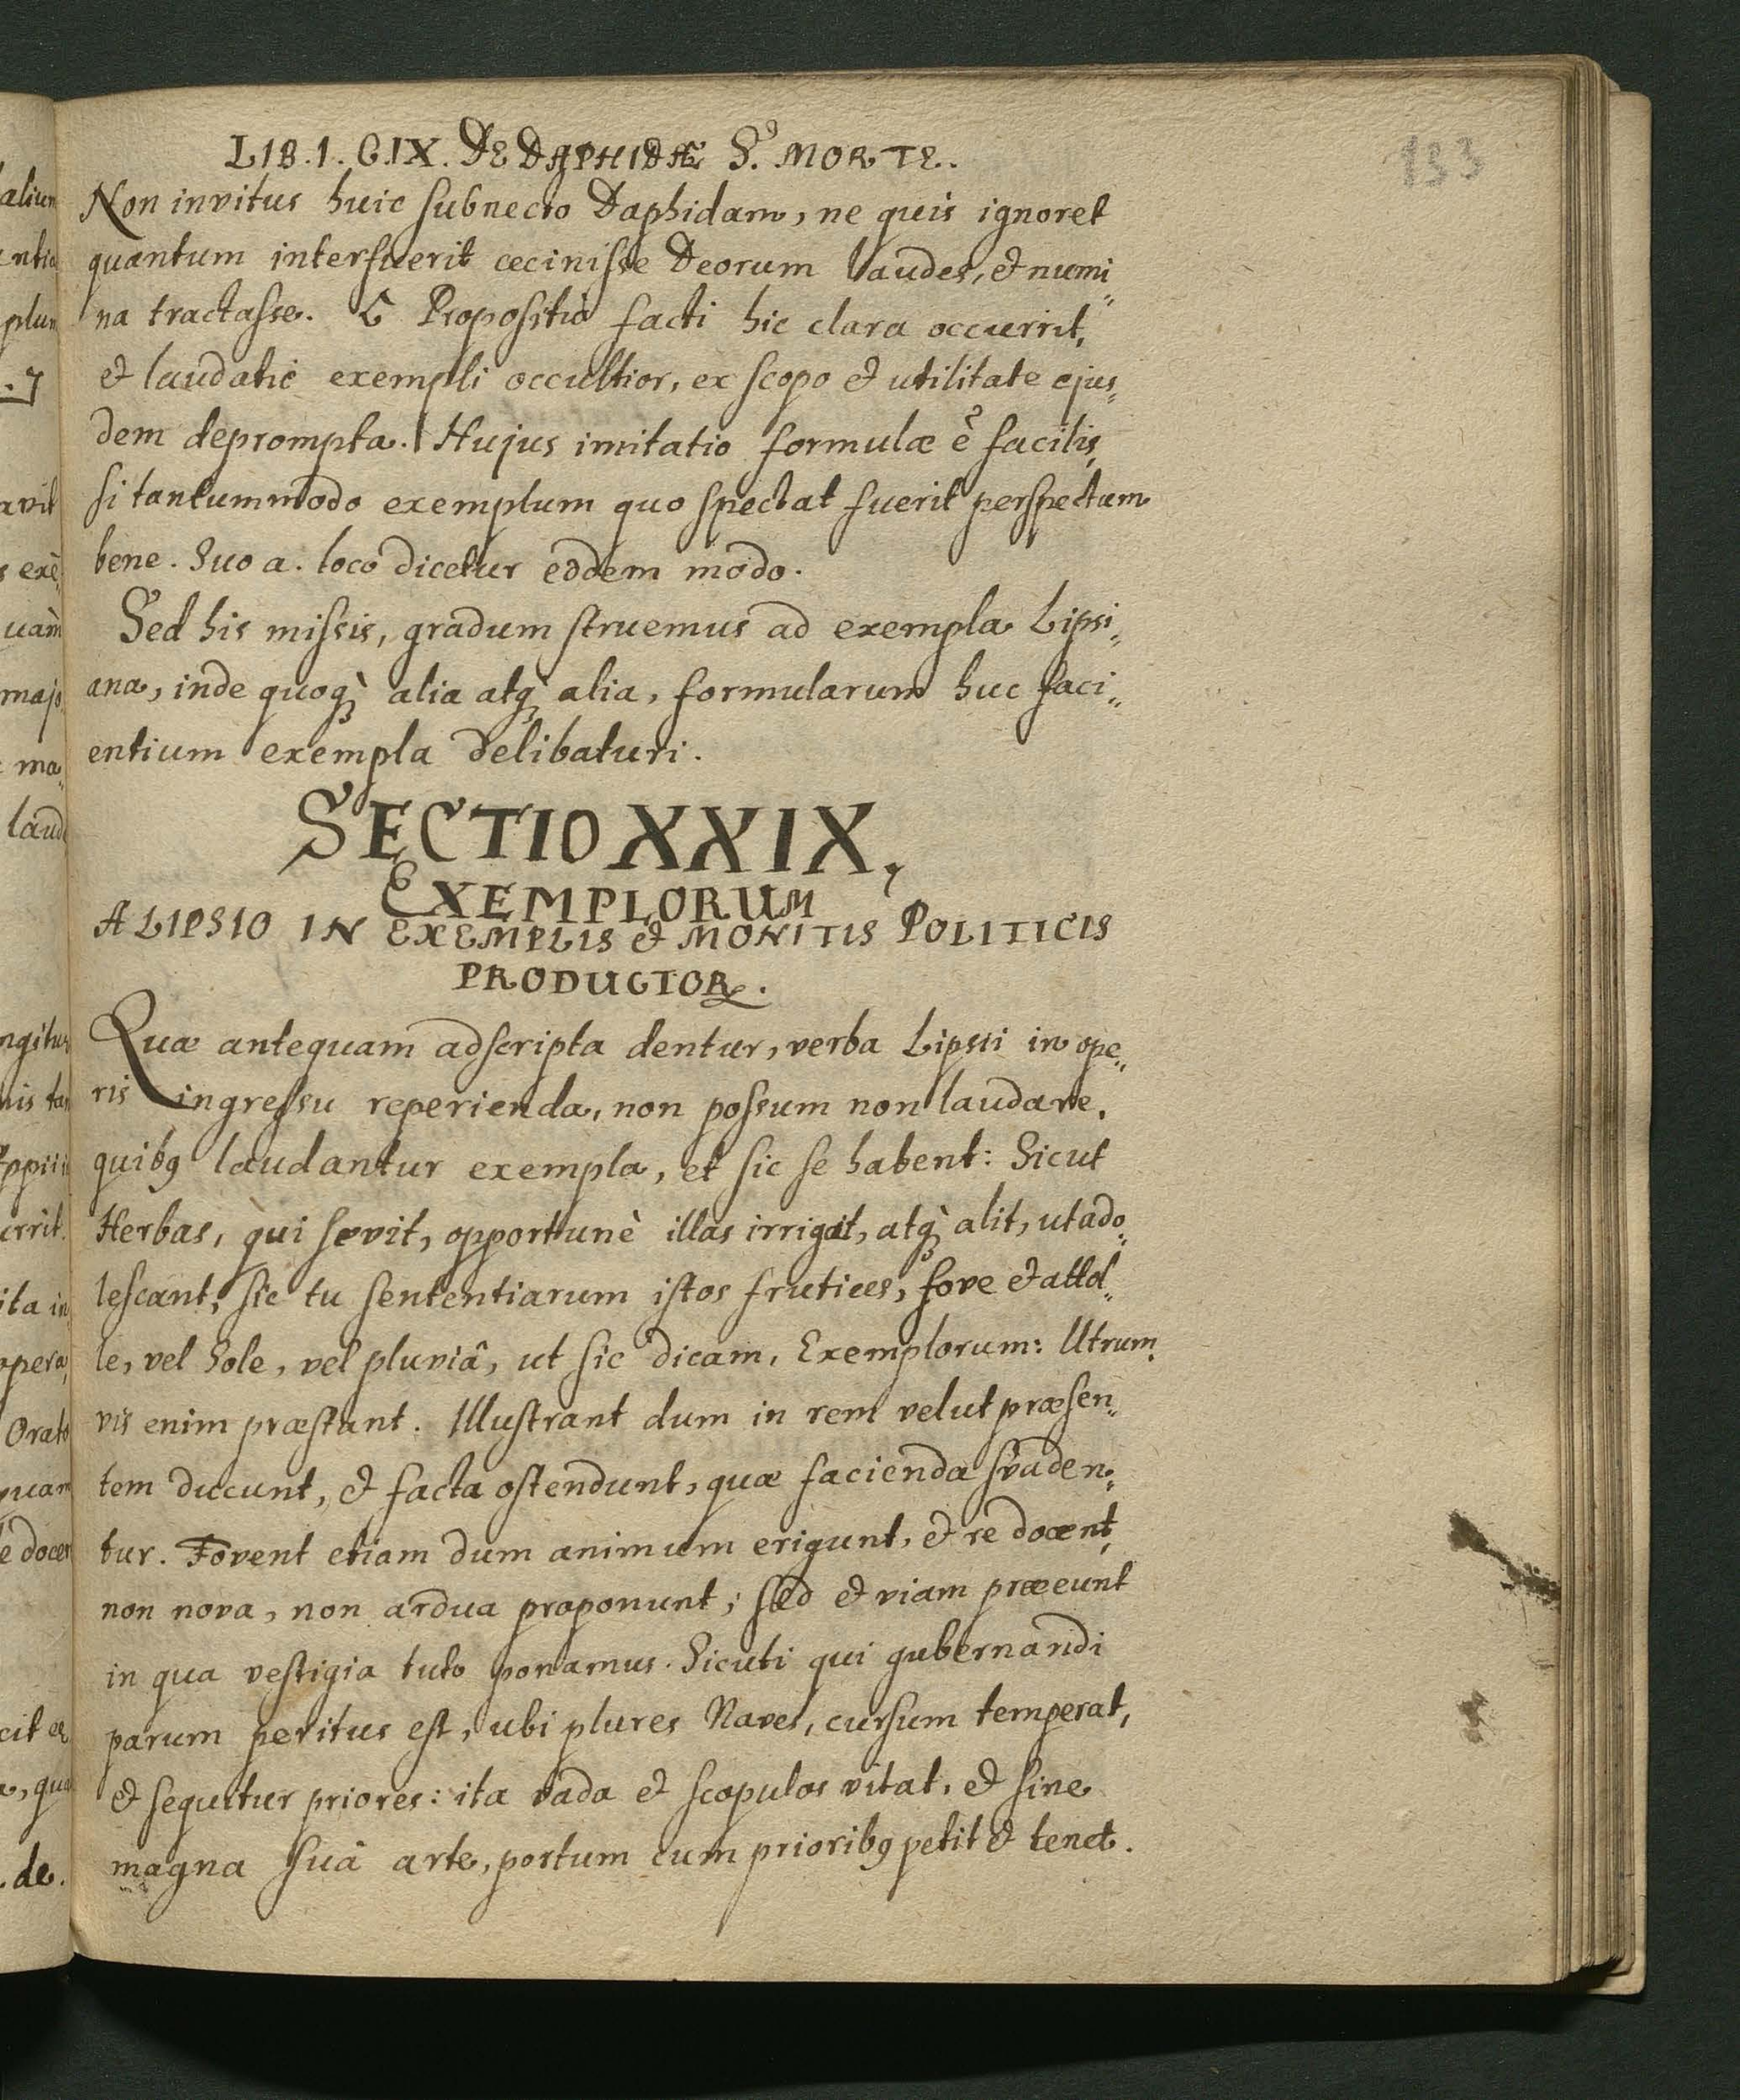 153
LIB.1.C.IX. DE DAPHIDÆ S. MORTE.
Non invitus huic subnecto Daphidam, ne quis ignoret
quantum interfuerit cecinisse Deorum laudes, & numi„
na tractasse. Propositio facti hic clara occurrit,
& laudatio exempli occultior, ex scopo & utilitate ejus„
dem deprompta. Hujus imitatio formulæ ē facilis,
si tantummodo exemplum quo spectat fuerit perspectum
bene. Suo a. loco dicetur eodem modo.
Sed his missis, gradum struemus ad exempla Lipsi„
ana, inde quoq; alia atq; alia, formularum huc faci„
entium exempla delibaturi.
SECTIO XXIX,
EXEMPLORUM
A LIPSIO IN EXEMPLIS & MONITIS POLITICIS
PRODUCTOR.
Quæ antequam adscripta dentur, verba Lipsii in ope„
ris ingressu reperienda, non possum non laudare,
quibꝰ laudantur exempla, et sic se habent: Sicut
Herbas, qui sevit, opportunè illas irrigat, atq; alit, ut ado„
lescant; sic tu sententiarum istos frutices, fove & attol„
le, vel Sole, vel pluviâ, ut sic dicam, Exemplorum: Utrum„
vis enim præstant. Illustrant dum in rem velut præsen„
tem ducunt, & facta ostendunt, quæ facienda svaden„
tur. Fovent etiam dum animum erigunt, & re docent,
non nova, non ardua proponunt; sed & viam præeunt
in qua vestigia tuto ponamus. Sicuti qui gubernandi
parum peritus est, ubi plures Naves, cursum temperat,
& sequitur priores: ita vada & scopulos vitat, & sine
magna suâ arte, portum cum prioribꝰ petit & tenet.